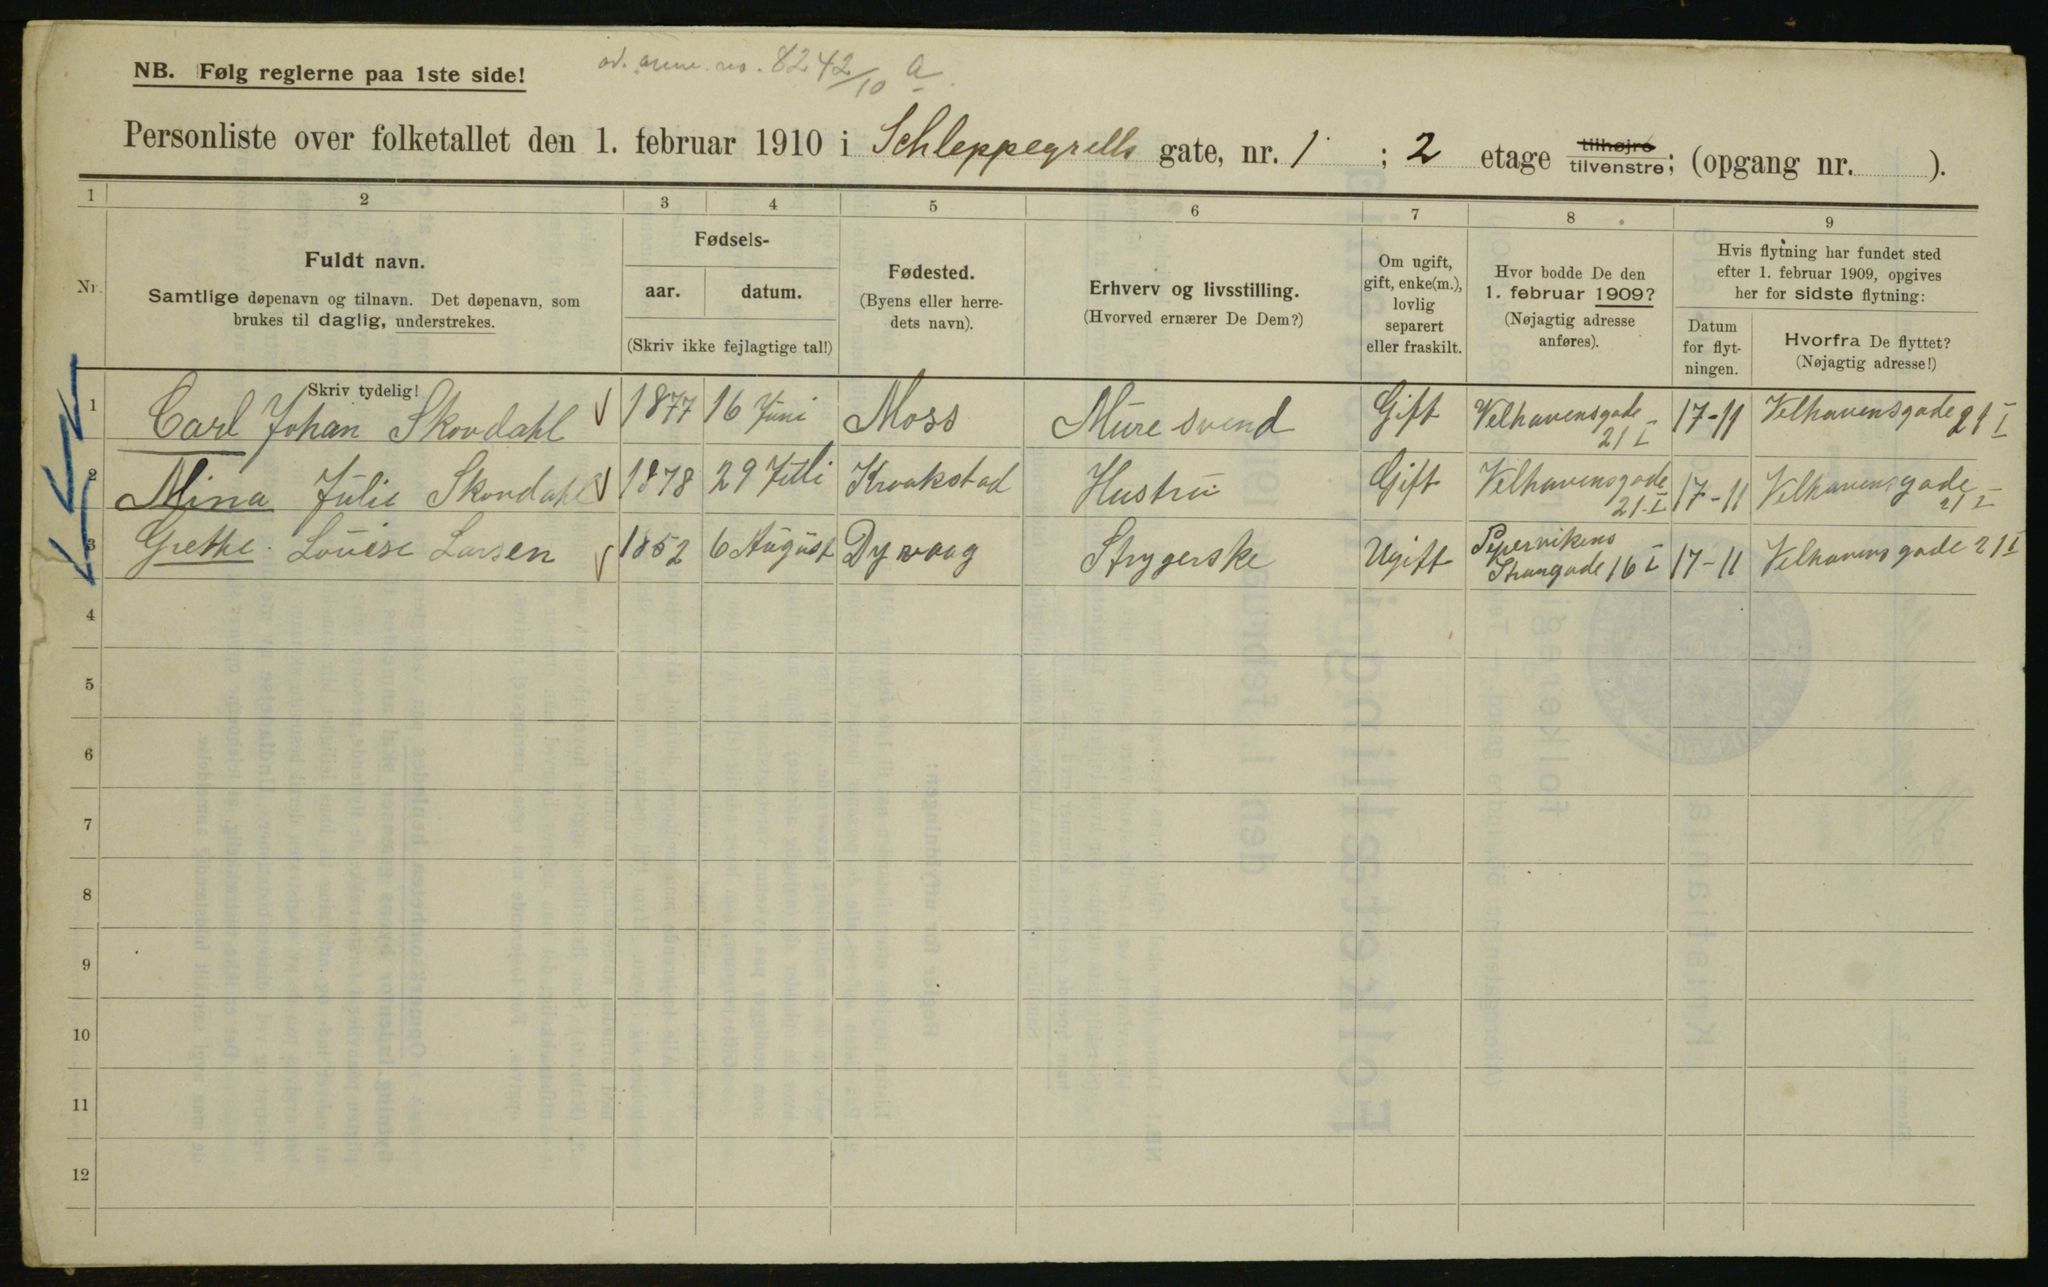 NB. Følg reglerne paa 1ste side!
8242/10 a
Personliste over folketallet den 1. februar 1910 i Schleppegrells gate, nr. 1 ; 2 etage tilhøjre tilvenstre; (opgang nr. ).
1 2 3 4 5 6 7 8 9
Nr.
Fuldt navn.
Samtlige døpenavn og tilnavn. Det døpenavn, som
brukes til daglig, understrekes.
Skriv tydelig!
Fødsels-
aar. datum.
(Skriv ikke fejlagtige tal!)
Fødested.
(Byens eller herre-
dets navn).
Erhverv og livsstilling.
(Hvorved ernærer De Dem?)
Om ugift,
gift, enke(m.),
lovlig
separert
eller fraskilt.
Hvor bodde De den
1. februar 1909?
(Nøjagtig adresse
anføres).
Hvis flytning har fundet sted
efter 1. februar 1909, opgives
her for sidste flytning:
Datum
for flyt-
ningen.
Hvorfra De flyttet?
(Nøjagtig adresse!)
1 Carl Johan Skovdahl 1877 16 Juni Moss Mure svend Gift Velhavensgade 21 I 17-11 Velhavensgade 21 I
2 Mina Julie Skovdahl 1878 29 Juli Kraakstad Hustru Gift Velhavensgade 21 I 17-11 Velhavensgade 21 I
3 Grethe Louise Larsen 1852 6 August Dyvaag Strygerske Ugift Pipervikens Strangade 16 I 17-11 Velhavensgade 21 I
4
5
6
7
8
9
10
11
12